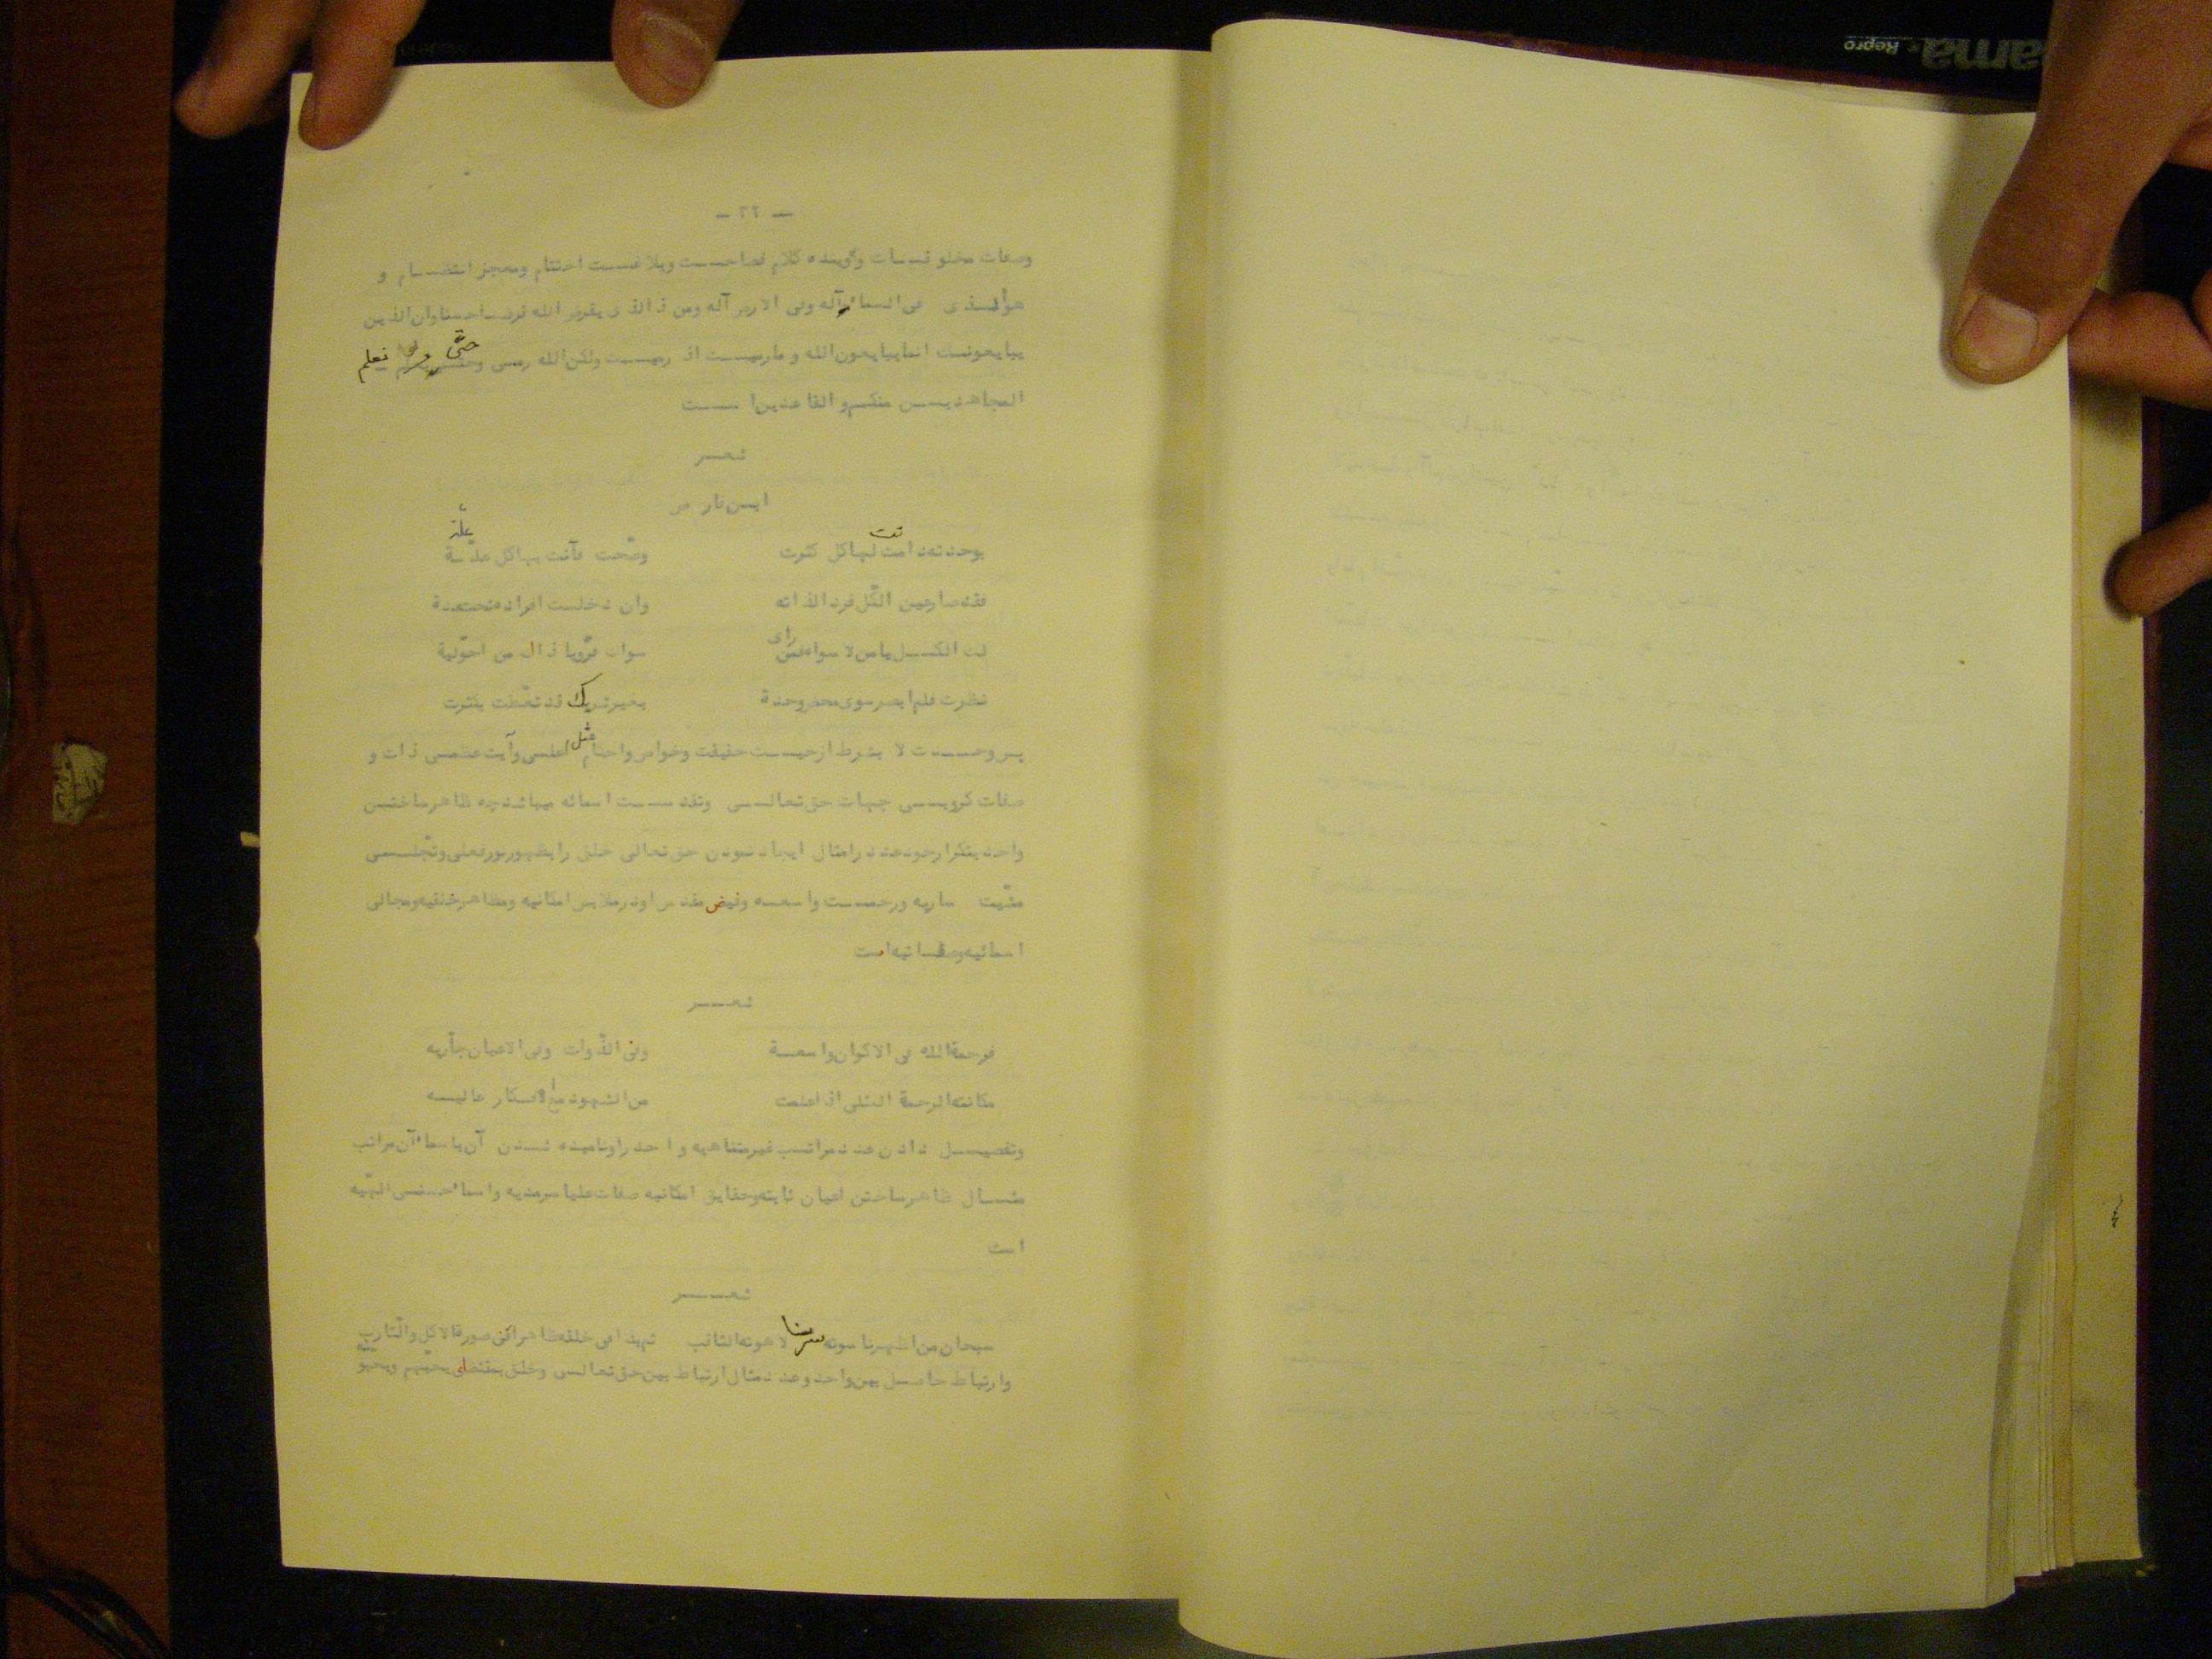 — ۲۲ —
وصفات مخلوقات وگوینده کلام فصاحت وبلاغت اختتام ومعجز انتظام و
هوالذی فی السماء آله وفی الارض آله ومن ذالذی یقرض الله قرضاحسنا وان الذین
یبایعونک انما یبایعون الله و مارمیت اذ رمیت ولکن الله رمی حتّی نعلم
المجاهدین منکم و القاعدین است
شعر
ابن فارض
بوحدته دامت لها کل کثرت وصّحت فآنت بها کل علّة
فقد صارعین الکّل فردالذاته وان دخلت افراده تحت عدة
نظرت فلم ابصر سوی محض وحدة بغیر شریک قد تغّطت بکثرت
پس وحدت لا بشرط از حیث حقیقت وخواص واحکام مثل اعلی وآیت عظمی ذات و
صفات کروبی جهات حق تعالی وتقدست اسمائه میباشد چه ظاهرساختن
واحد بتکرار خود عدد رامثال ایجاد نمودن حق تعالی خلق را بظهور نور فعلی وتجّلی
مشّیت ساریه ورحمت واسعه وفیض مقدس او در ملابس امکانیه ومظاهر خلقیه ومجالی
اسمائیه وصفاتیه است
شعر
فرحمةالله فی الاکوان واسعة وفی الذّوات وفی الاعیان جاریه
مکانةالرحمة المثلی اذ اعلمت من الشهود مع الافکار عالیه
وتفصیل دادن عدد مراتب غیرمتناهیه واحد را ونامیده شدن آن باسماء آن مراتب
مثال ظاهرساختن اعیان ثابته وحقایق امکانیه صفات علیا سرمدیه واسماء حسنی الهّیه
است
شعر
سبحان من اظهر ناسوته سرسنا لاهوته الثاقب شهدا فی خلقه ظاهرا فی صورة الاکل والّشارب
وارتباط حاصل بین واحد وعدد مثال ارتباط بین حق تعالی وخلق بمقتضای یحبّهم ویحبّونه